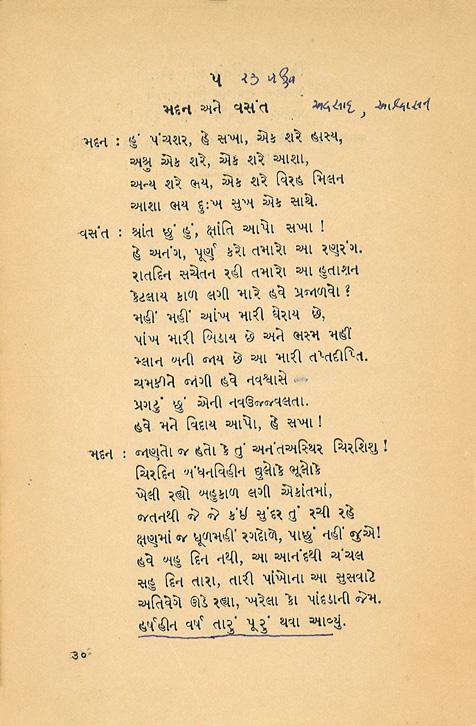 ૫ ૨૩ પંક્તિ
મદન અને વસંત અવસાદ, આશ્વાસન
મદન : હું પંચશર, હે સખા, એક શરે હાસ્ય,
અશ્રુ એક શરે, એક શરે આશા,
અન્ય શરે ભય, એક શરે વિરહ મિલન
આશા ભય દુઃખ સુખ એક સાથે.
વસંત : શ્રાંત છું હું, ક્ષાંતિ આપો સખા !
હે અનંગ, પૂર્ણ કરો તમારો આ રણરંગ.
રાતદિન સચેતન રહી તમારો આ હુતાશન
કેટલાય કાળ લગી મારે હવે પ્રજાળવો ?
મહીં મહીં આંખ મારી ઘેરાય છે,
પાંખ મારી બિડાય છે અને ભસ્મ મહીં
મ્લાન બની જાય છે આ મારી તપ્તદીપ્તિ.
ચમકીને જાગી હવે નવશ્વાસે
પ્રગટું છું એની નવઉજ્જવલતા.
હવે મને વિદાય આપો, હે સખા !
મદન : જાણતો જ હતો કે તું અનંતઅસ્થિર ચિરશિશુ !
ચિરદિન બંધનવિહીન દ્યુલોકે ભૂલોકે
ખેલી રહ્યો બહુકાળ લગી એકાંતમાં,
જતનથી જે જે કંઈ સુંદર તું રચી રહે
ક્ષણુમાં જ ધૂળમહીં રગદોળે, પાછું નહીં જુએ!
હવે બહુ દિન નથી, આ આનંદથી ચંચલ
સહુ દિન તારા, તારી પાંખોના આ સુસવાટે
અતિવેગે ઊડે રહ્યા, ખરેલા કો પાંદડાની જેમ.
હર્ષહીન વર્ષ તારું પૂરું થવા આવ્યું.
૩૦